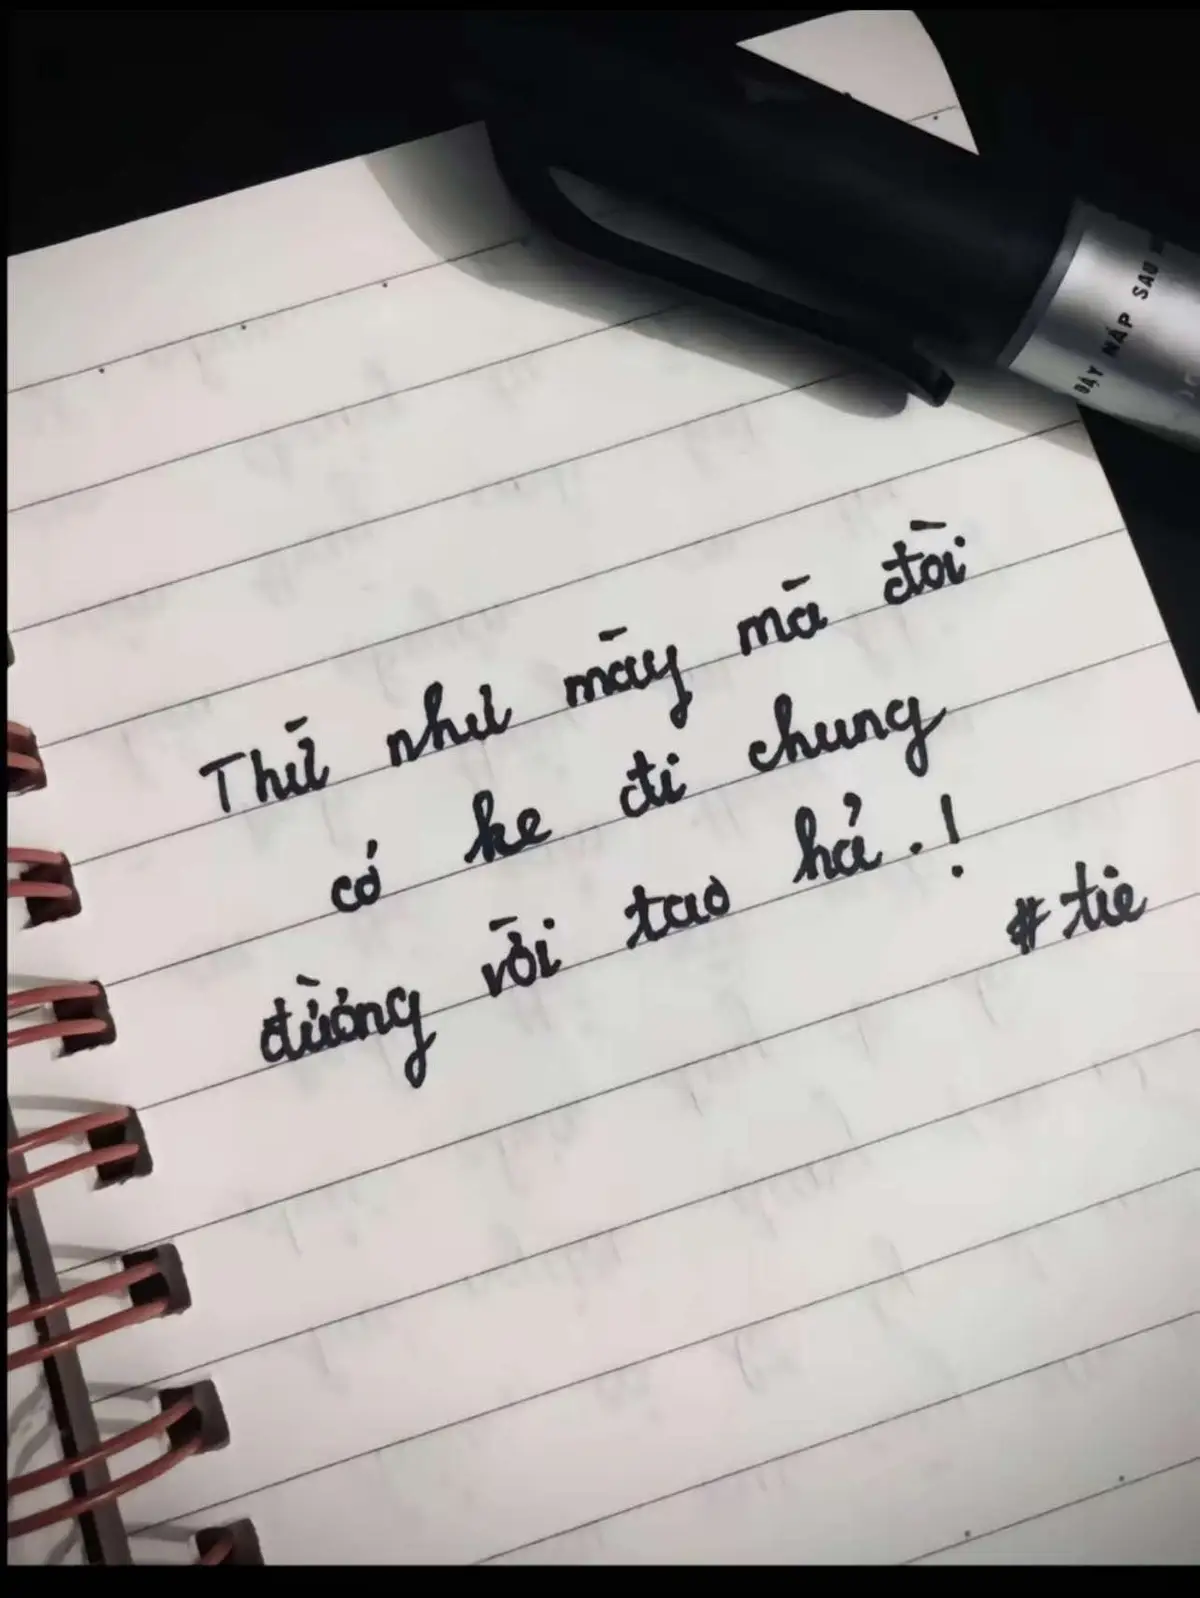 ĐẬY NẮP SAU
Thứ như mày mà đòi
có ke đi chung
đường với tao hả.!
#tie